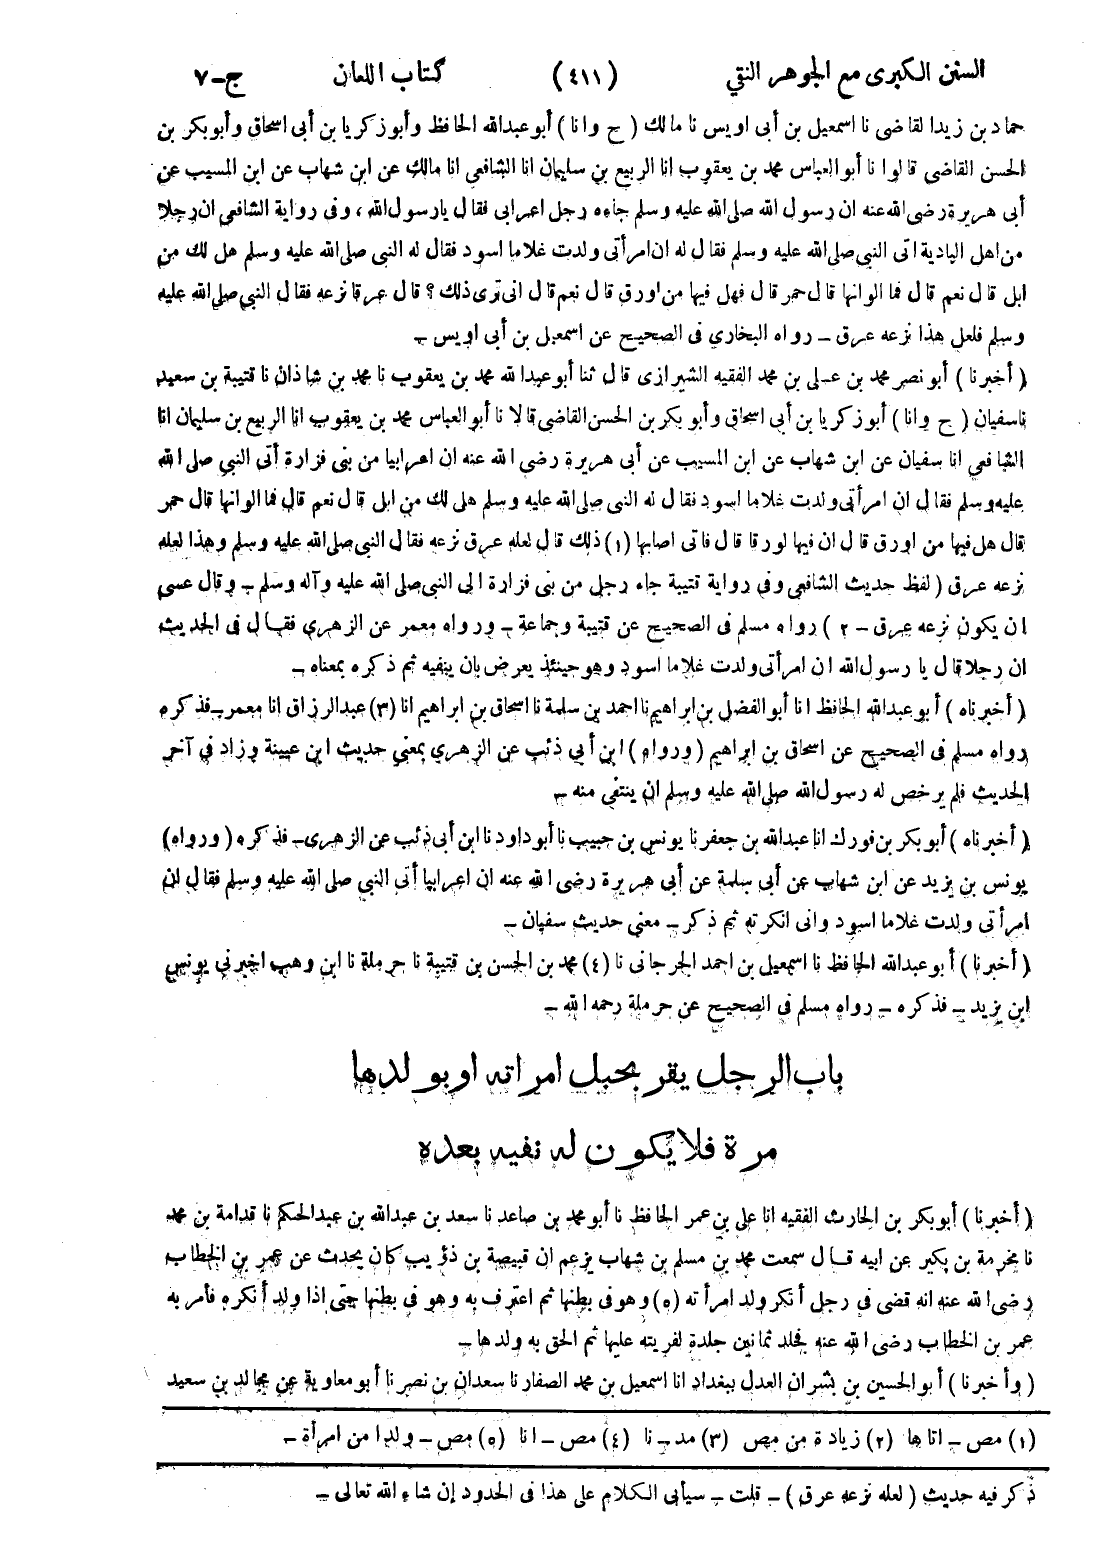 السنن الكبرى مع الجوهر النقي (٤١١) كتاب اللعان ج-٧
حماد بن زيد القاضى نا اسمعيل بن أبى اويس نا مالك (ح وانا) أبو عبدالله الحافظ وأبو زكريا بن أبى اسحاق وأبو بكر بن
الحسن القاضى قالوا نا أبو العباس محمد بن يعقوب انا الربيع بن سليمان انا الشافعى انا مالك عن ابن شهاب عن ابن المسيب عن
أبى هريرة رضى الله عنه ان رسول الله صلى الله عليه وسلم جاءه رجل اعرابى فقال يا رسول الله، وفى رواية الشافعى ان رجلا
من اهل البادية اتى النبى صلى الله عليه وسلم فقال له ان امرأتى ولدت غلاما اسود فقال له النبى صلى الله عليه وسلم هل لك من
ابل قال نعم قال فما الوانها قال حمر قال فهل فيها من اورق قال نعم قال انى ترى ذلك؟ قال عرقا نزعه فقال النبى صلى الله عليه
وسلم فلعل هذا نزعه عرق ــ رواه البخاري فى الصحيح عن اسمعيل بن أبى اويس ــ
(أخبرنا) أبو نصر محمد بن على بن محمد الفقيه الشيرازى قال ثنا أبو عبد الله محمد بن يعقوب نا محمد بن شاذان نا قتيبة بن سعيد
نا سفيان (ح وانا) أبو زكريا بن أبى اسحاق وأبو بكر بن الحسن القاضى قالا نا أبو العباس محمد بن يعقوب انا الربيع بن سليمان انا
الشافعي انا سفيان عن ابن شهاب عن ابن المسيب عن أبى هريرة رضى الله عنه ان اعرابيا من بنى فزارة أتى النبي صلى الله
عليه وسلم فقال ان امرأتى ولدت غلاما اسود فقال له النبى صلى الله عليه وسلم هل لك من ابل قال نعم قال فما الوانها قال حمر
قال هل فيها من اورق قال ان فيها لورقا قال فانى اصابها (١) ذلك قال لعله عرق نزعه فقال النبى صلى الله عليه وسلم وهذا لعله
نزعه عرق (لفظ حديث الشافعى وفي رواية قتيبة جاء رجل من بنى فزارة الى النبى صلى الله عليه وآله وسلم ــ وقال عسى
ان يكون نزعه عرق ــ ٢) رواه مسلم فى الصحيح عن قتيبة وجماعة ــ ورواه معمر عن الزهري فقال فى الحديث
ان رجلا قال يا رسول الله ان امرأتى ولدت غلاما اسود وهو حينئذ يعرض بان ينفيه ثم ذكره بمعناه ــ
(أخبرناه) أبو عبدالله الحافظ انا أبو الفضل بن ابراهيم نا احمد بن سلمة نا اسحاق بن ابراهيم انا (٣) عبد الرزاق انا معمر ــ فذكره
رواه مسلم فى الصحيح عن اسحاق بن ابراهيم (ورواه) ابن أبي ذئب عن الزهري بمعنى حديث ابن عيينة وزاد في آخر
الحديث فلم يرخص له رسول الله صلى الله عليه وسلم ان ينتفى منه ــ
(أخبرناه) أبو بكر بن فورك انا عبدالله بن جعفر نا يونس بن حبيب نا أبو داود نا ابن أبى ذئب عن الزهرى ــ فذكره (ورواه)
يونس بن يزيد عن ابن شهاب عن أبى سلمة عن أبى هريرة رضى الله عنه ان اعرابيا أتى النبي صلى الله عليه وسلم فقال ان
امرأتى ولدت غلاما اسود وانى انكرته ثم ذكر ــ معنى حديث سفيان ــ
(أخبرنا) أبو عبدالله الحافظ نا اسمعيل بن احمد الجرجانى نا (٤) محمد بن الحسن بن قتيبة نا حرملة نا ابن وهب اخبرني يونس
ابن يزيد ــ فذكره ــ رواه مسلم فى الصحيح عن حرملة رحمه الله ــ
باب الرجل يقر بحبل امراته او بولدها
مرة فلا يكون له نفيه بعده
(أخبرنا) أبو بكر بن الحارث الفقيه انا على بن عمر الحافظ نا أبو محمد بن صاعد نا سعد بن عبدالله بن عبدالحكم نا قدامة بن محمد
نا مخرمة بن بكير عن ابيه قال سمعت محمد بن مسلم بن شهاب يزعم ان قبيصة بن ذؤيب كان يحدث عن عمر بن الخطاب
رضى الله عنه انه قضى في رجل أنكر ولد امرأته (٥) وهو فى بطنها ثم اعترف به وهو في بطنها حتى اذا ولد أنكره فأمر به
عمر بن الخطاب رضى الله عنه فجلد ثمانين جلدة لفريته عليها ثم الحق به ولدها ــ
(وأخبرنا) أبو الحسين بن بشران العدل ببغداد انا اسمعيل بن محمد الصفار نا سعدان بن نصر نا أبو معاوية عن مجالد بن سعيد
(١) مص ــ اتاها (٢) زيادة من مص (٣) مد ــ نا (٤) مص ــ انا (٥) مص ــ ولدا من امرأة ــ
ذكر فيه حديث (لعله نزعه عرق) ــ قلت ــ سيأتى الكلام على هذا فى الحدود إن شاء الله تعالى ــ